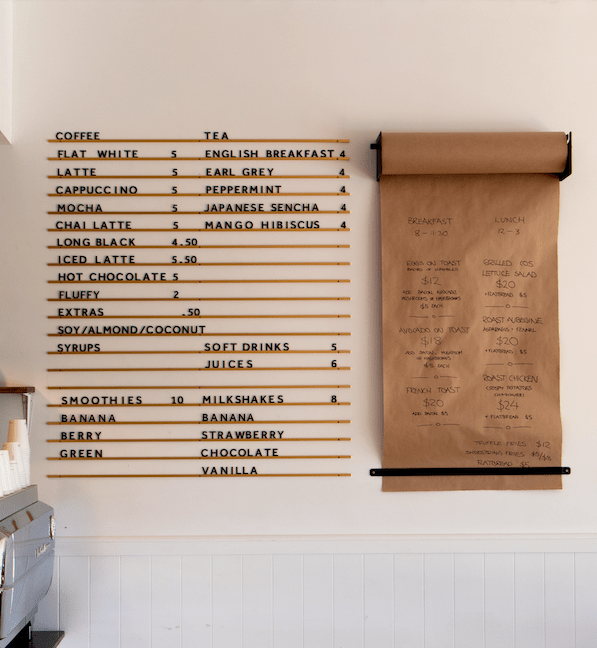 COFFEE
FLAT WHITE 5
LATTE 5
CAPPUCCINO 5
MOCHA 5
CHAI LATTE 5
LONG BLACK 4.50
ICED LATTE 5.50
HOT CHOCOLATE 5
FLUFFY 2
EXTRAS .50
SOY/ALMOND/COCONUT
SYRUPS
SMOOTHIES 10
BANANA
BERRY
GREEN
TEA
ENGLISH BREAKFAST 4
EARL GREY 4
PEPPERMINT 4
JAPANESE SENCHA 4
MANGO HIBISCUS 4
SOFT DRINKS 5
JUICES 6
MILKSHAKES 8
BANANA
STRAWBERRY
CHOCOLATE
VANILLA
BREAKFAST
8 - 11:30
EGGS ON TOAST
$12
ADD BACON, AVOCADO
$5 EACH
AVOCADO ON TOAST
$18
FRENCH TOAST
$20
ADD BACON $5
LUNCH
12 - 3
GRILLED COS
LETTUCE SALAD
$20
+ FLATBREAD $5
ROAST AUBERGINE
ASPARAGUS + FENNEL
$20
+ FLATBREAD $5
ROAST CHICKEN
CRISPY POTATOES
$24
+ FLATBREAD $5
TRUFFLE FRIES $12
SHOESTRING FRIES
FLATBREAD $5